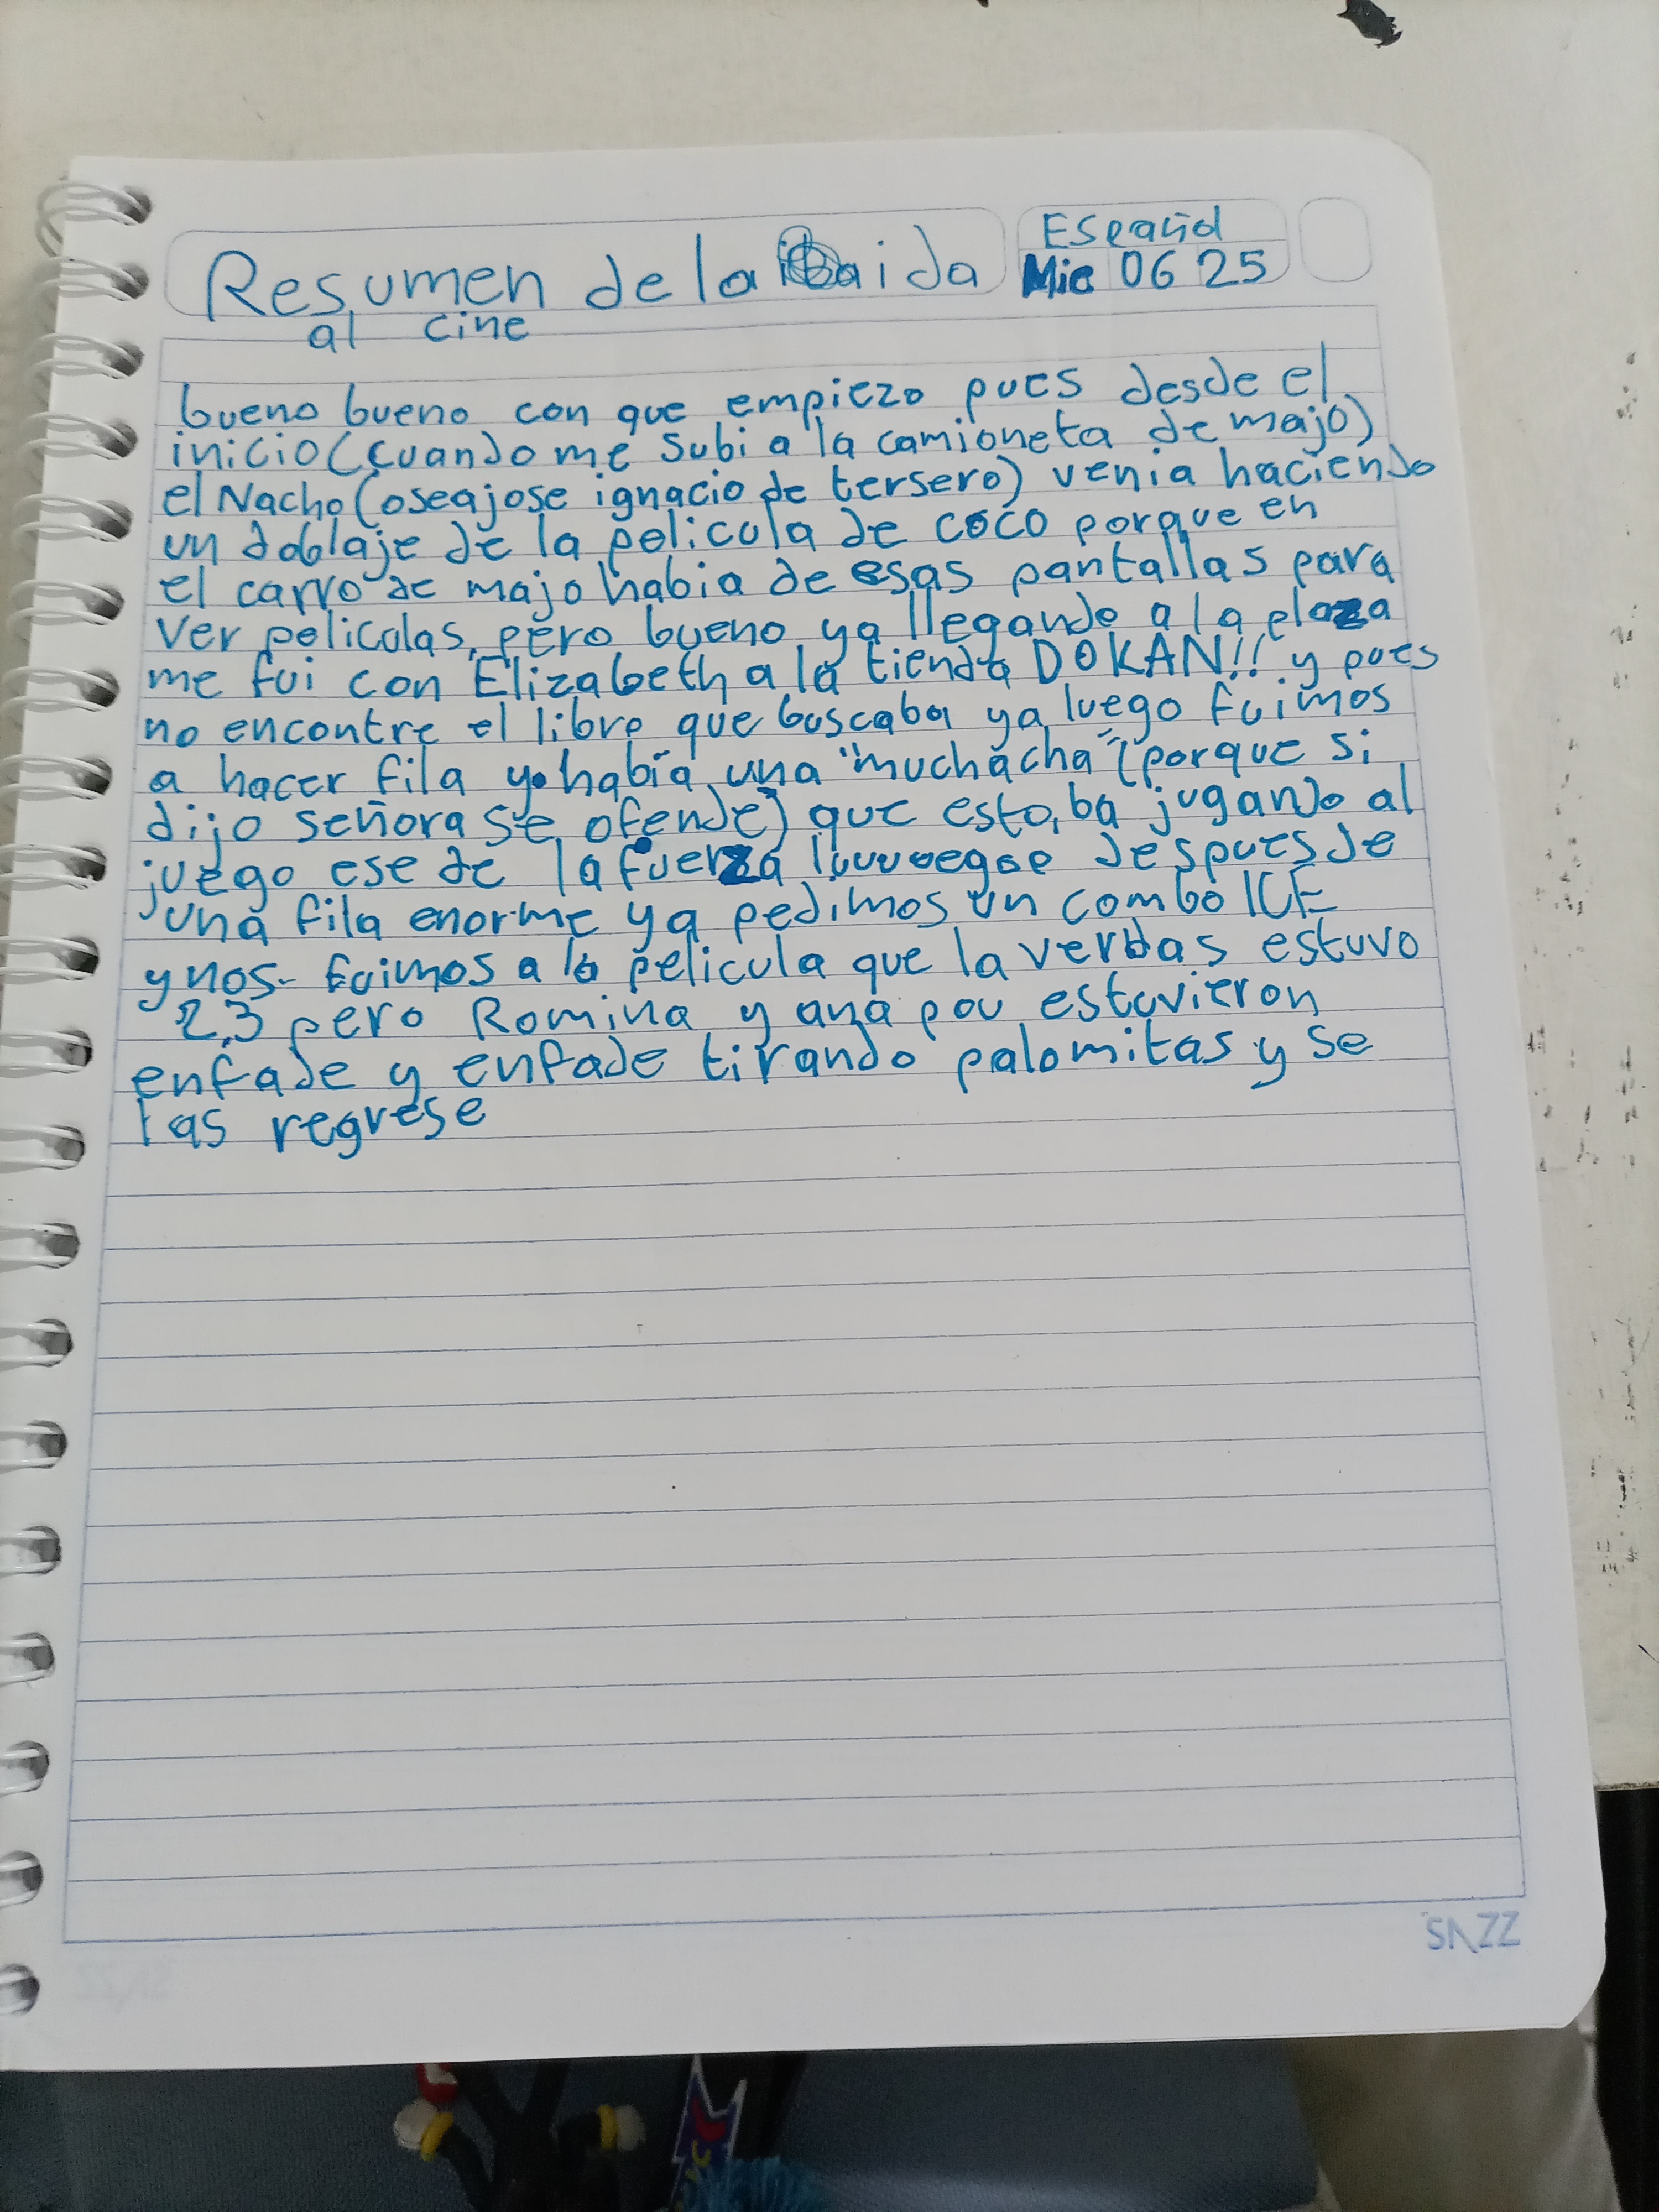 Resumen de la ida
al cine
Español
Mie 06 25
bueno bueno con que empiezo pues desde el
inicio (cuando me subi a la camioneta de majo)
el Nacho (osea jose ignacio de tersero) venia haciendo
un doblaje de la pelicula de coco porque en
el carro de majo habia de esas pantallas para
ver peliculas, pero bueno ya llegando a la plaza
me fui con Elizabeth a la tienda DOKAN!! y pues
no encontre el libro que buscaba ya luego fuimos
a hacer fila y habia una "muchacha" (porque si
dijo señora se ofende) que estaba jugando al
juego ese de la fuerza luuuuegoo despues de
una fila enorme ya pedimos un combo ICE
y nos fuimos a la pelicula que la verdas estuvo
2,3 pero Romina y ana pou estuvieron
enfade y enfade tirando palomitas y se
las regrese
SAZZ